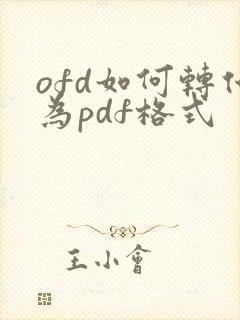 ofd如何轉化
為pdf格式
王小會